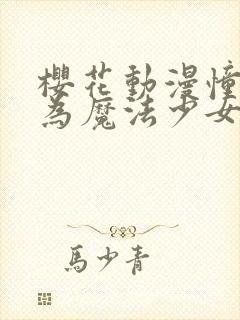 櫻花動漫憧
為魔法少女
馬少青